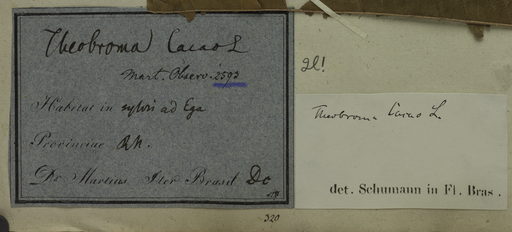 Theobroma Cacao L
Mart. Observ. 2593
Habitat in sylvis ad Ega
Provinciae R.N.
Dr. Martius Iter Brasil Dc
2l!
Theobroma Cacao L.
det. Schumann in Fl. Bras.
320